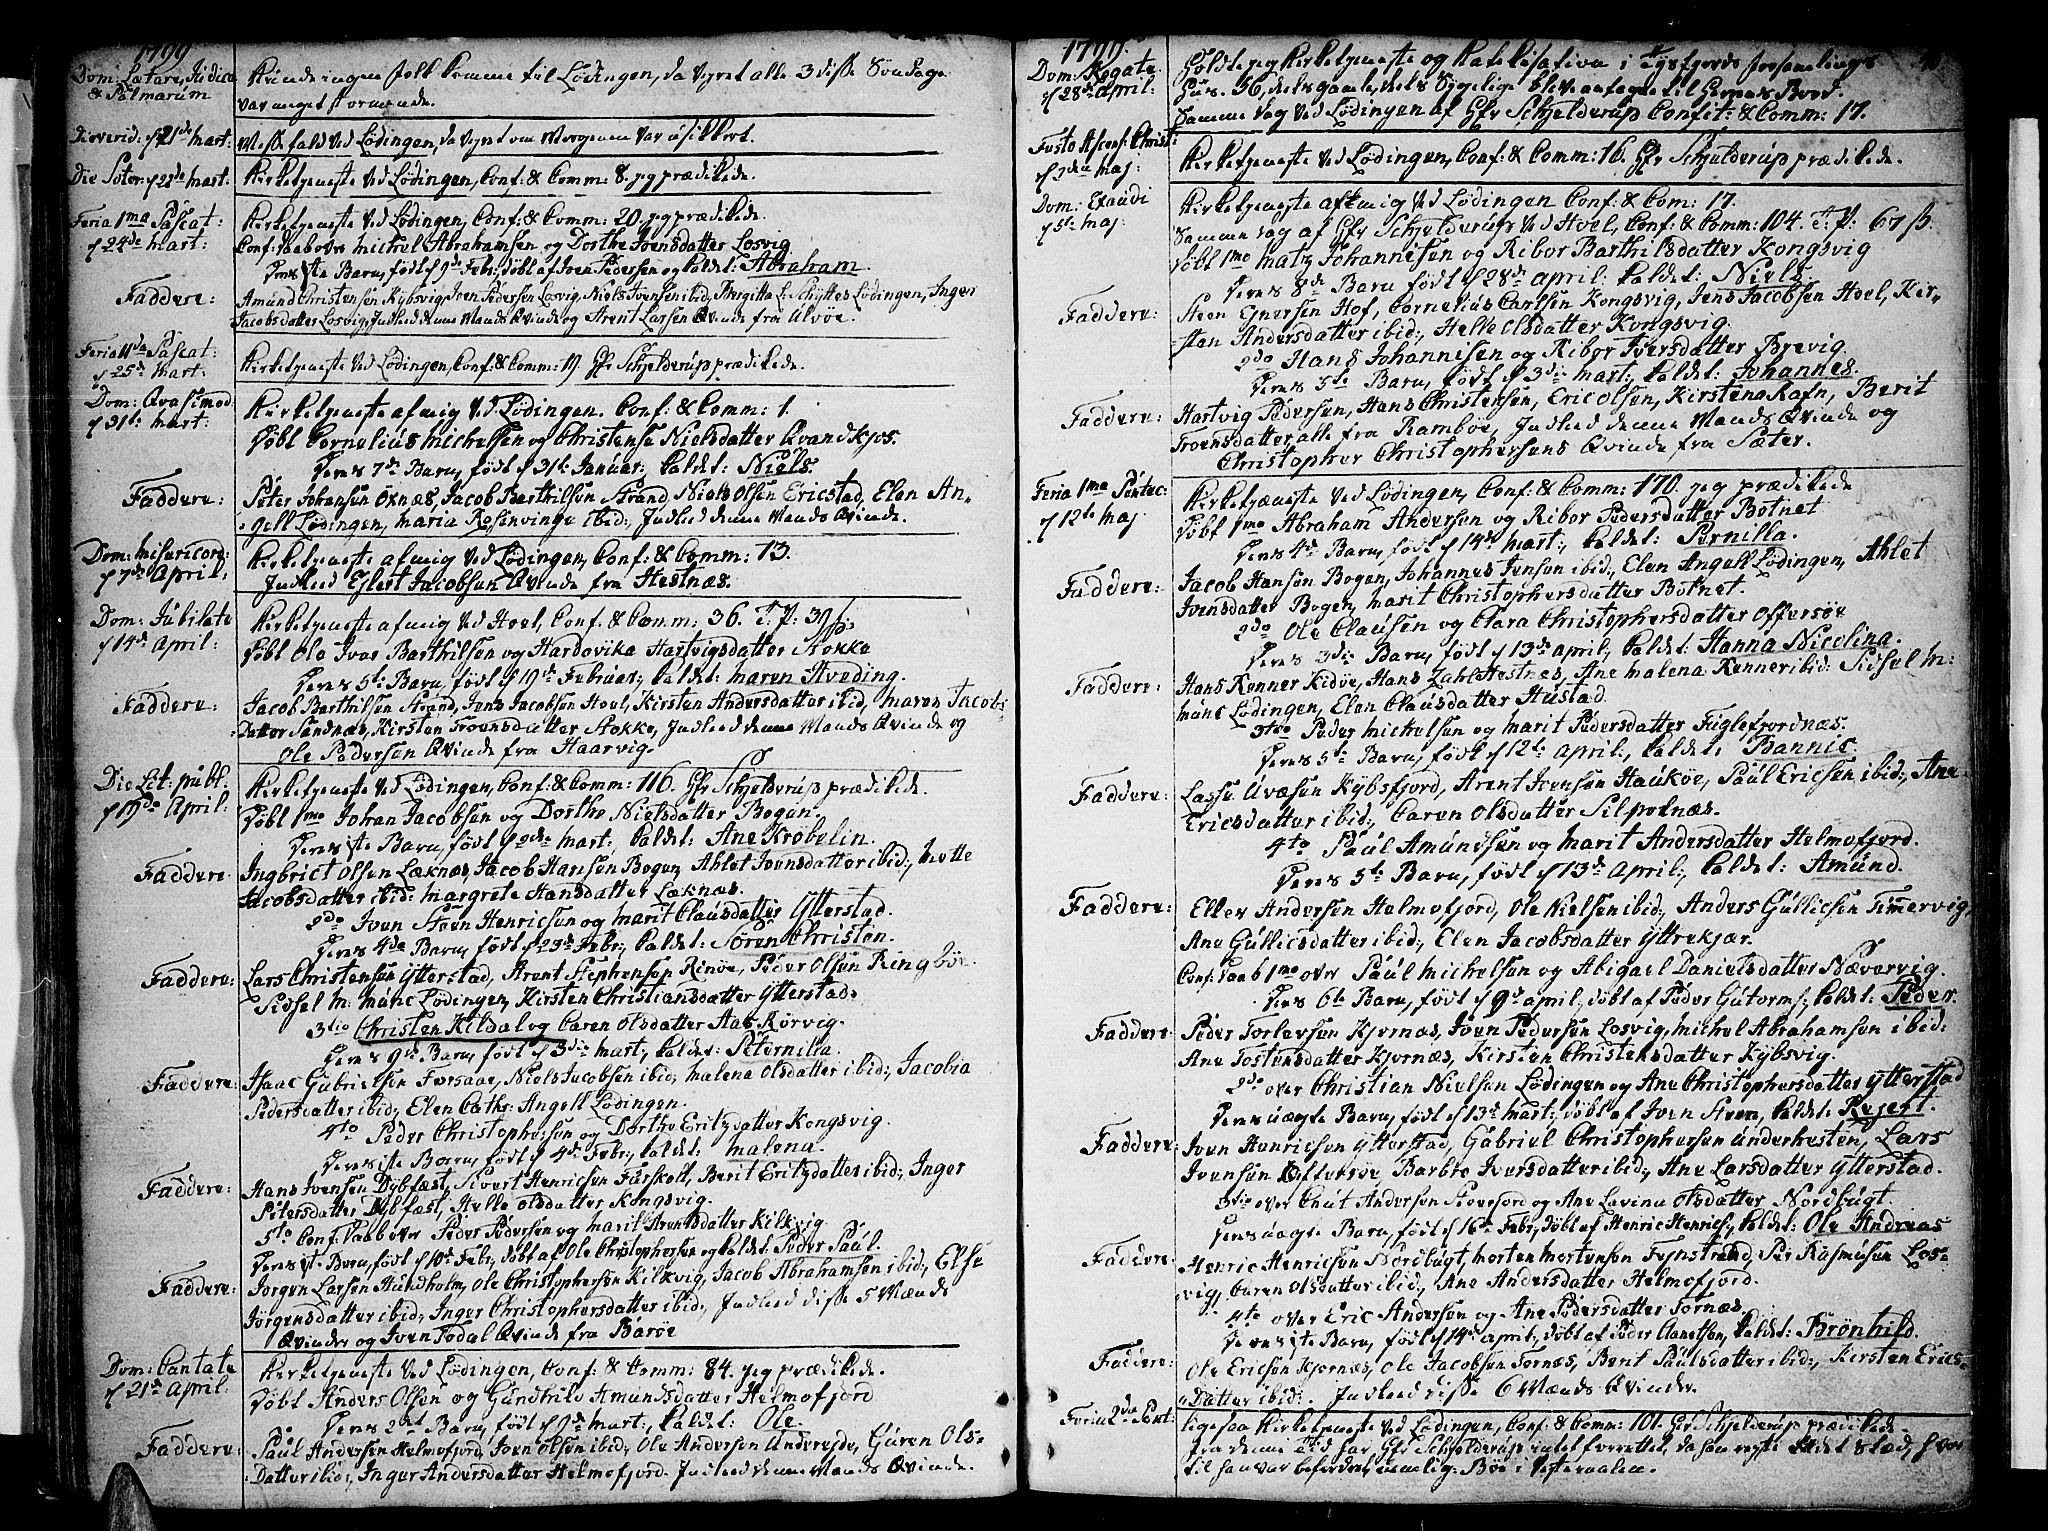 1799
Dom: Lætare, Judica
& Palmarum
Kunde ingen folk komme til Lødingen, da Vejret alle 3 disse Søndage
var meget stormende.
Die virid: d 21de Mart:
Messefald ved Lødingen, da Vejret om Morgenen var usikkert.
Kirketjeneste ved Lødingen, Conf: & Comm: 8. jeg prædikede.
Feria 1ma Pascat:
d 24de Mart:
Kirketjeneste ved Lødingen, Conf: & Comm: 20. jeg prædikede.
Conf: Daab over Michel Abrahamsen og Dorthe Ivensdatter Losvig
Deres 1ste Barn, født d 9de Febr: døbt af Iven Pedersen og kaldet: Abraham.
Faddere:
Amund Christensen Kybsvig, Iven Pedersen Losvig, Niels Ivensen ibid:, Birgitta L: Schyttes Lødingen, Inger
Jacobsdatter Losvig, Indleed denne Mands Qvinde og Arent Larsen Qvinde fra Ulvøe.
Feria IIda Pascat:
d 25de Mart:
Kirketjeneste ved Lødingen, Conf: & Comm: 19. Hr Schjelderup prædikede.
Dom: Qvasimod:
d 31te Mart:
Kirketjeneste af mig ved Lødingen. Conf: & Comm: 1.
Døbt Cornelius Michelsen og Christense Nielsdatter Qvandkjos.
Deres 7de Barn, født d 31te Januar: kaldet: Niels.
Faddere:
Peter Johansen Øxnæs, Jacob Barthilsen Strand, Niels Olsen Ericstad, Elen An-
gell Lødingen, Maria Rosenvinge ibid:, Indleed denne Mands Qvinde.
Dom: Misericord:
d 7de April.
Kirketjeneste af mig ved Lødingen, Conf: & Comm: 13.
Indleed Ejlert Jacobsen Qvinde fra Hestnæs.
Dom: Jubilate
d 14de April:
Kirketjeneste af mig ved Hoel, Conf: & Comm: 36. T: P: 39 ß.
Døbt Ole Ivar Barthilsen og Hardovika Hartvigsdatter Stokke
Deres 5te Barn, født d 19de Februar:, kaldet: Maren Hveding.
Faddere:
Jacob Barthilsen Strand, Jens Jacobsen Hoel, Kirsten Andersdatter ibid:, Maren Jacobs-
Datter Sandnæs, Kirsten Troensdatter Stokke, Indleed denne Mands Qvinde og
Ole Pedersen Qvinde fra Haarvig.
Die Lit: publ:
d 19de April:
Kirketjeneste ved Lødingen, Conf: & Comm: 116. Hr Schjelderup prædikede.
Døbt 1mo Johan Jacobsen og Dorthe Nielsdatter Bogen.
Deres 1ste Barn, født 9de Mart:, kaldet: Ane Krøbelin.
Faddere:
Ingbrict Olsen Læknæs, Jacob Hansen Bogen, Ahlet Ivensdatter ibid:, Mette
Jacobsdatter ibid: Margrete Hansdatter Læknæs.
2do Iven Steen Henricsen og Marit Clausdatter Ytterstad.
Deres 4de Barn, født d 23de Febr:, kaldet: Søren Christen.
Faddere:
Lars Christensen Ytterstad, Arent Stephensen Rinøe, Peder Olsen Ringbøe
Sidsel M: Munc Lødingen, Kirsten Christiansdatter Ytterstad.
3tio Christen Kildal og Caren Olsdatter Aas Rørvig.
Deres 9de Barn, født d 3die Mart:, kaldet: Peternilla.
Faddere:
Isaac Gabrielsen Forsaae, Niels Jacobsen ibid:, Malena Olsdatter ibid:, Jacobia
Pedersdatter ibid:, Elen Cath: Angell Lødingen.
4to Peder Christophersen og Dorthe Eritzdatter Kongsvig.
Deres 1ste Barn, født d 4de Febr:, kaldet: Malena.
Faddere:
Hans Ivensen Dybfæst, Sivert Henricsen Farskolt, Berit Eritzdatter ibid:, Inger
Petersdatter Dybfæst, Helle Olsdatter Kongsvig.
5to Conf: Daab over Peder Pedersen og Marit Arentsdatter Kilkvig
Deres 1te Barn, født d 10de Febr:, døbt af Ole Christophersen og kaldet: Peder Paul.
Faddere:
Jørgen Larsen Hundholm, Ole Christophersen Kilkvig, Jacob Abrahamsen ibid:, Else
Jørgensdatter ibid:, Inger Christophersdatter ibid:, Indleed disse 5 Mænds
Qvinder og Iven Todal Qvinde fra Barøe
Dom: Cantate
d 21de April:
Kirketjeneste ved Lødingen, Conf: & Comm: 84. jeg prædikede.
Døbt Anders Olsen og Gundhild Amundsdatter Helmofjord
Deres 2det Barn, født d 9de Mart:, kaldet: Ole.
Faddere:
Paul Andersen Helmofjord, Iven Olsen ibid:, Ole Andersen Undereyde, Guren Ols-
Datter ibid:, Inger Andersdatter Helmofjord. Indleed denne Mands Qvinde.
1799.
Dom: Rogate
d 28de April:
Holdte jeg Kirketjeneste og Katekisation i Tysfjords forsamlings
Huus. 56, deels gamle, deels Sygelige bleve antagne til Herrens Bord.
Samme Dag ved Lødingen af Hr Schjelderup Confit: & Comm: 17.
Festo Ascens: Christi
d 2den Maj:
Kirketjeneste ved Lødingen, Conf: & Comm: 16. Hr Schjelderup prædikede.
Dom: Exaudi
d 5te Maj:
Kirketjeneste af mig ved Lødingen Conf: & Com: 17.
Samme Dag af Hr Schjelderup ved Hoel, Conf: & Comm: 104. T: P: 67 ß.
Døbt 1mo Matz Johannisen og Ribor Barthilsdatter Kongsvig
Deres 8de Barn født d 28de April: kaldet: Niels.
Faddere:
Steen Enersen Hof, Cornelius Carlsen Kongsvig, Jens Jacobsen Hoel, Kir-
stan Andersdatter ibid:, Helle Olsdatter Kongsvig.
2do Hans Johannisen og Ribor Iversdatter Brevig.
Deres 5te Barn, født d 3die Mart:, kaldet: Johannes.
Faddere:
Hartvig Pedersen, Hans Christensen, Eric Olsen, Kirstena Rafn, Berit
Troensdatter, alle fra Ramböe, Indleed denne Mands Qvinde og
Christopher Christophersens Qvinde fra Sæter.
Feria 1ma Pentec:
d 12te Maj
Kirketjeneste ved Lødingen, Conf: & Comm: 170. jeg prædikede
Døbt 1mo Abraham Andersen og Ribor Pedersdatter Botnet
Deres 4de Barn, født d 14de Mart:, kaldet: Pernilla.
Faddere:
Jacob Hansen Bogen, Johannes Jensen ibid:, Elen Angell Lødingen, Ahlet
Ivensdatter Bogen, Marit Christophersdatter Botnet.
2do Ole Clausen og Clara Christophersdatter Offersøe
Deres 3die Barn, født d 13de April, kaldet: Hanna Nicolina.
Faddere:
Hans Kenner Kidøe, Hans Zahl Hestnæs, Ane Malena Kenner ibid: Sidsel M:
Munc Lødingen, Elen Clausdatter Hustad.
3tio Peder Michelsen og Marit Pedersdatter Fuglefjordnæs.
Deres 5te Barn, født d 12te April:, kaldet: Bannic.
Faddere:
Lasse Uvæsen Kybsfjord, Arent Ivensen Haukøe, Paul Ericsen ibid:, Ane
Ericsdatter ibid:, Caren Olsdatter Silpoknæs.
4to Paul Amundsen og Marit Andersdatter Helmofjord.
Deres 5te Barn, født d 13de April:, kaldet: Amund.
Faddere:
Eller Andersen Helmofjord, Ole Nielsen ibid:, Anders Gullicsen Temmervig,
Ane Gullicsdatter ibid:, Elen Jacobsdatter Yttrekjær.
Conf: Daab 1mo over Paul Michelsen og Abigael Danielsdatter Næververvig.
Deres 6te Barn, født d 9de April, døbt af Peder Gutorms: kaldet: Peder.
Faddere:
Peder Torlevsen Kjernæs, Iven Pedersen Losvig, Michel Abrahamsen ibid:
Ane Tostensdatter Kjernæs, Kirsten Christensdatter Kybsvig.
2do over Christian Nielsen Lødingen og Ane Christophersdatter Ytterstad
Deres uægte Barn, født d 13de Mart:, døbt af Iven Steen, kaldet: Rejert.
Faddere:
Iven Henricsen Ytterstad, Gabriel Christophersen Underhesten, Lars
Ivensen Offersøe, Barbro Iversdatter ibid:, Ane Larsdatter Ytterstad.
3tio over Cnut Andersen Stovefjord og Ane Lavina Olsdatter Nordbugt.
Deres uægte Barn, født d 16de Febr:, døbt af Henric Henrics:, kaldet: Ole Andreas
Faddere:
Henric Henricsen Nordbugt, Morten Mortensen Fynstrand, Per Rasmusen Los-
vig, Caren Olsdatter ibid:, Ane Andersdatter Helmofjord.
4to over Eric Andersen og Ane Pedersdatter Tornæs.
Deres 1te Barn, født d 14de April:, døbt af Peder Clanetsen, kaldet: Brønhild.
Faddere:
Ole Ericsen Kjernæs, Ole Jacobsen Tornæs, Berit Paulsdatter ibid:, Kirsten Erics-
Datter ibid:. Indleed disse 6 Mænds Qvinder.
Feria 2da Pent:
ligesaa Kirketjeneste ved Lødingen, Conf: & Comm: 101. Hr Schjelderup prædikede
fra denne Tid har Hr Schjelderup intet forrettet, da han rejste til det Sted, hvor
til han var befordret, nemlig: Bøe i Vesteraalen.